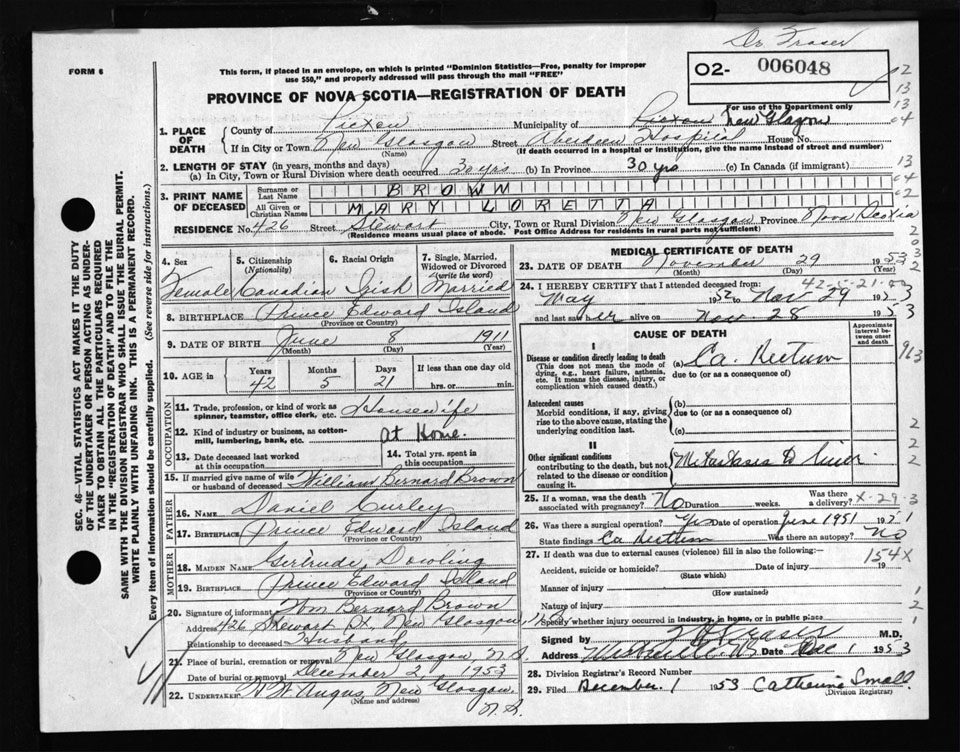 Dr Fraser
FORM 6
This form, if placed in an envelope, on which is printed "Dominion Statistics—Free, penalty for improper use $50," and properly addressed will pass through the mail "FREE"
02- 006048
For use of the Department only
PROVINCE OF NOVA SCOTIA—REGISTRATION OF DEATH
1. PLACE OF DEATH
County of Pictou Municipality of Pictou New Glasgow
If in City or Town New Glasgow Street Aberdeen Hospital House No.
(Name) (If death occurred in a hospital or institution, give the name instead of street and number)
2. LENGTH OF STAY (in years, months and days)
(a) In City, Town or Rural Division where death occurred 30 yrs (b) In Province 30 yrs (c) In Canada (if immigrant)
3. PRINT NAME OF DECEASED
Surname or Last Name BROWN
All Given or Christian Names MARY LORETTA
RESIDENCE No. 426 Street Stewart City, Town or Rural Division New Glasgow Province Nova Scotia
(Residence means usual place of abode. Post Office Address for residents in rural parts not sufficient)
4. Sex Female
5. Citizenship (Nationality) Canadian
6. Racial Origin Irish
7. Single, Married, Widowed or Divorced (write the word) Married
8. BIRTHPLACE Prince Edward Island
(Province or Country)
9. DATE OF BIRTH June 8 1911
(Month) (Day) (Year)
10. AGE in Years 42 Months 5 Days 21 If less than one day old hrs. or min.
OCCUPATION
11. Trade, profession, or kind of work as spinner, teamster, office clerk, etc. Housewife
12. Kind of industry or business, as cotton-mill, lumbering, bank, etc. at Home.
13. Date deceased last worked at this occupation
14. Total yrs. spent in this occupation
15. If married give name of wife or husband of deceased William Bernard Brown
FATHER
16. NAME Daniel Curley
17. BIRTHPLACE Prince Edward Island
(Province or Country)
MOTHER
18. MAIDEN NAME Gertrude Dowling
19. BIRTHPLACE Prince Edward Island
(Province or Country)
20. Signature of informant Wm Bernard Brown
Address 426 Stewart St. New Glasgow, N.S.
Relationship to deceased Husband
21. Place of burial, cremation or removal New Glasgow N.S.
Date of burial or removal December 2, 1953
22. UNDERTAKER W. Angus, New Glasgow.
(Name and address) N.S.
MEDICAL CERTIFICATE OF DEATH
23. DATE OF DEATH November 29 1953
(Month) (Day) (Year)
24. I HEREBY CERTIFY that I attended deceased from:
May 1952 to Nov 29 1953
and last saw her alive on Nov. 28 1953
CAUSE OF DEATH
Approximate interval between onset and death
I
Disease or condition directly leading to death (This does not mean the mode of dying, e.g., heart failure, asthenia, etc. It means the disease, injury, or complication which caused death.)
(a) Ca. Rectum
due to (or as a consequence of)
Antecedent causes
Morbid conditions, if any, giving rise to the above cause, stating the underlying condition last.
(b)
due to (or as a consequence of)
(c)
II
Other significant conditions contributing to the death, but not related to the disease or condition causing it.
Metastases to Liver
25. If a woman, was the death associated with pregnancy? No Duration weeks. Was there a delivery? X-29-3
26. Was there a surgical operation? Yes Date of operation June 1951
State findings Ca Rectum Was there an autopsy? No
27. If death was due to external causes (violence) fill in also the following:—
154X
Accident, suicide or homicide? Date of injury 19
(State which)
Manner of injury
(How sustained)
Nature of injury
Specify whether injury occurred in industry, in home, or in public place
Signed by M.D.
Address Date Dec 1 1953
28. Division Registrar's Record Number
29. Filed December 1 1953 Catherine Small
(Division Registrar)
SEC. 46—VITAL STATISTICS ACT MAKES IT THE DUTY OF THE UNDERTAKER OR PERSON ACTING AS UNDERTAKER TO OBTAIN ALL THE PARTICULARS REQUIRED IN THE "REGISTRATION OF DEATH" AND TO FILE THE SAME WITH THE DIVISION REGISTRAR WHO SHALL ISSUE THE BURIAL PERMIT.
WRITE PLAINLY WITH UNFADING INK. THIS IS A PERMANENT RECORD.
Every item of information should be carefully supplied. (See reverse side for instructions.)